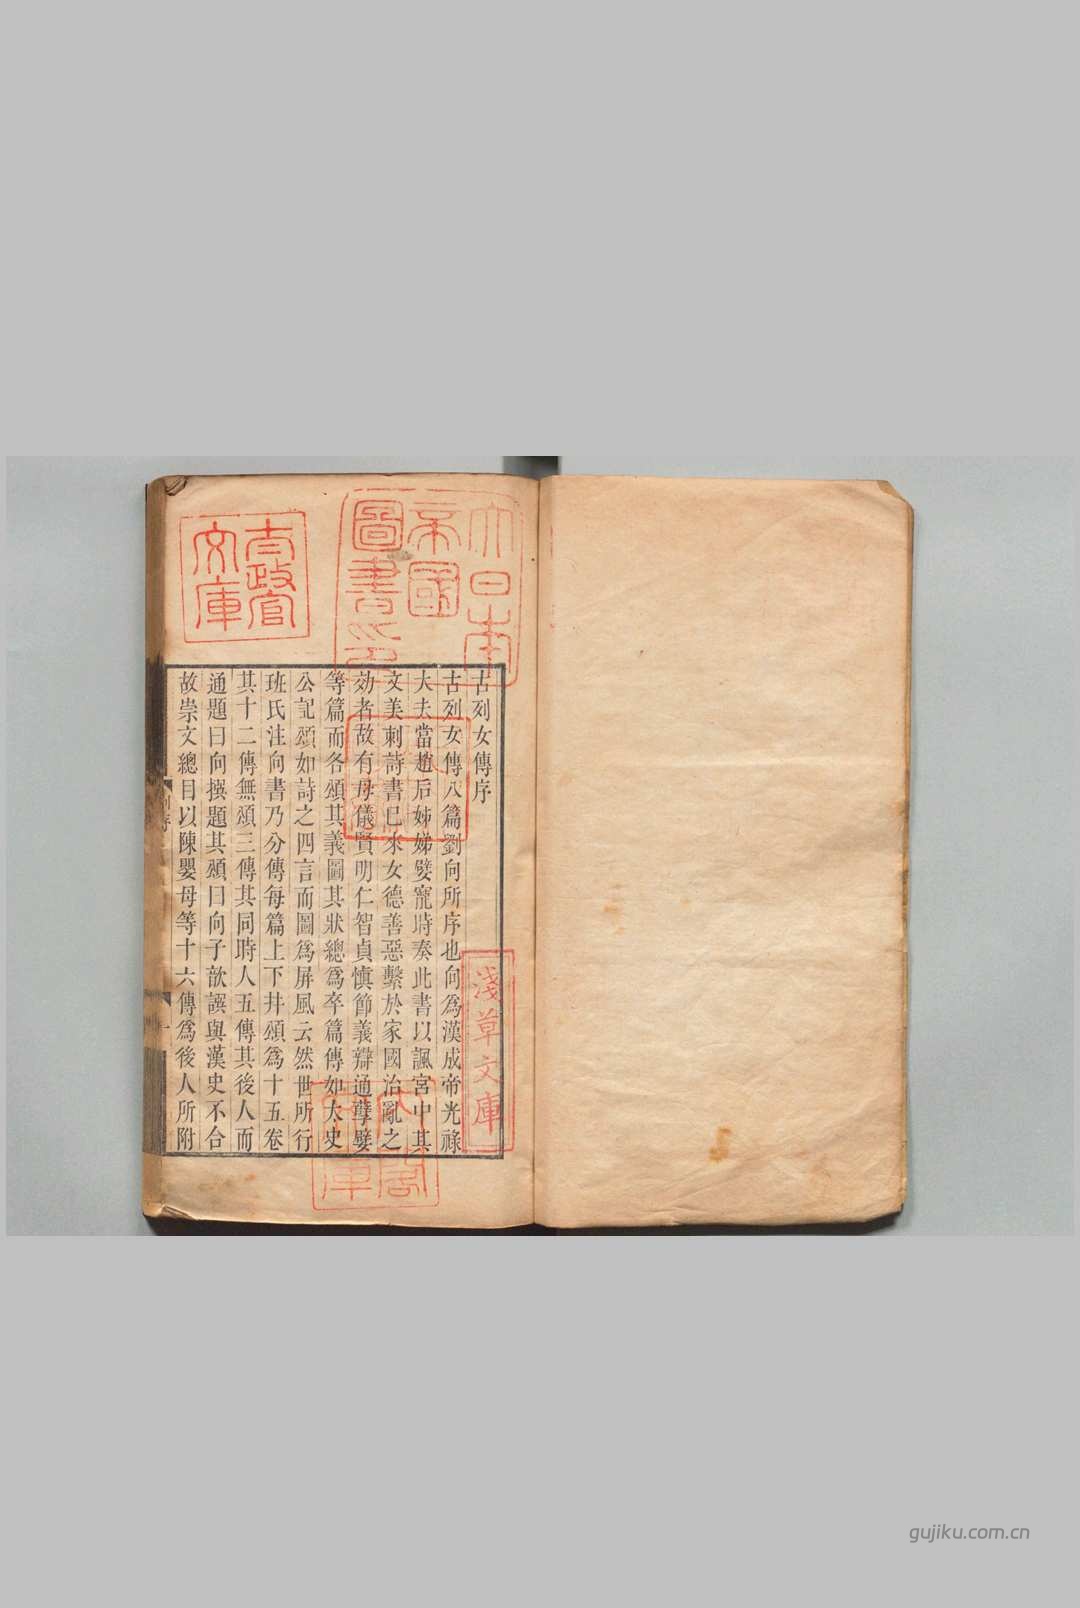 古列女傳序
古列女傳八篇劉向所序也向爲漢成帝光祿
大夫當趙后姊娣嬖寵時奏此書以諷宮中其
文美刺詩書已來女德善惡繫於家國治亂之
効者故有母儀賢明仁智貞慎節義辯通孽嬖
等篇而各頌其義圖其狀總爲卒篇傳如太史
公記頌如詩之四言而圖爲屏風云然世所行
班氏注向書乃分傳每篇上下并頌爲十五卷
其十二傳無頌三傳其同時人五傳其後人而
通題曰向撰題其頌曰向子歆譔與漢史不合
故崇文總目以陳嬰母等十六傳爲後人所附
大日本
帝國
圖書印
太政官
文庫
淺草文庫
gujiku.com.cn